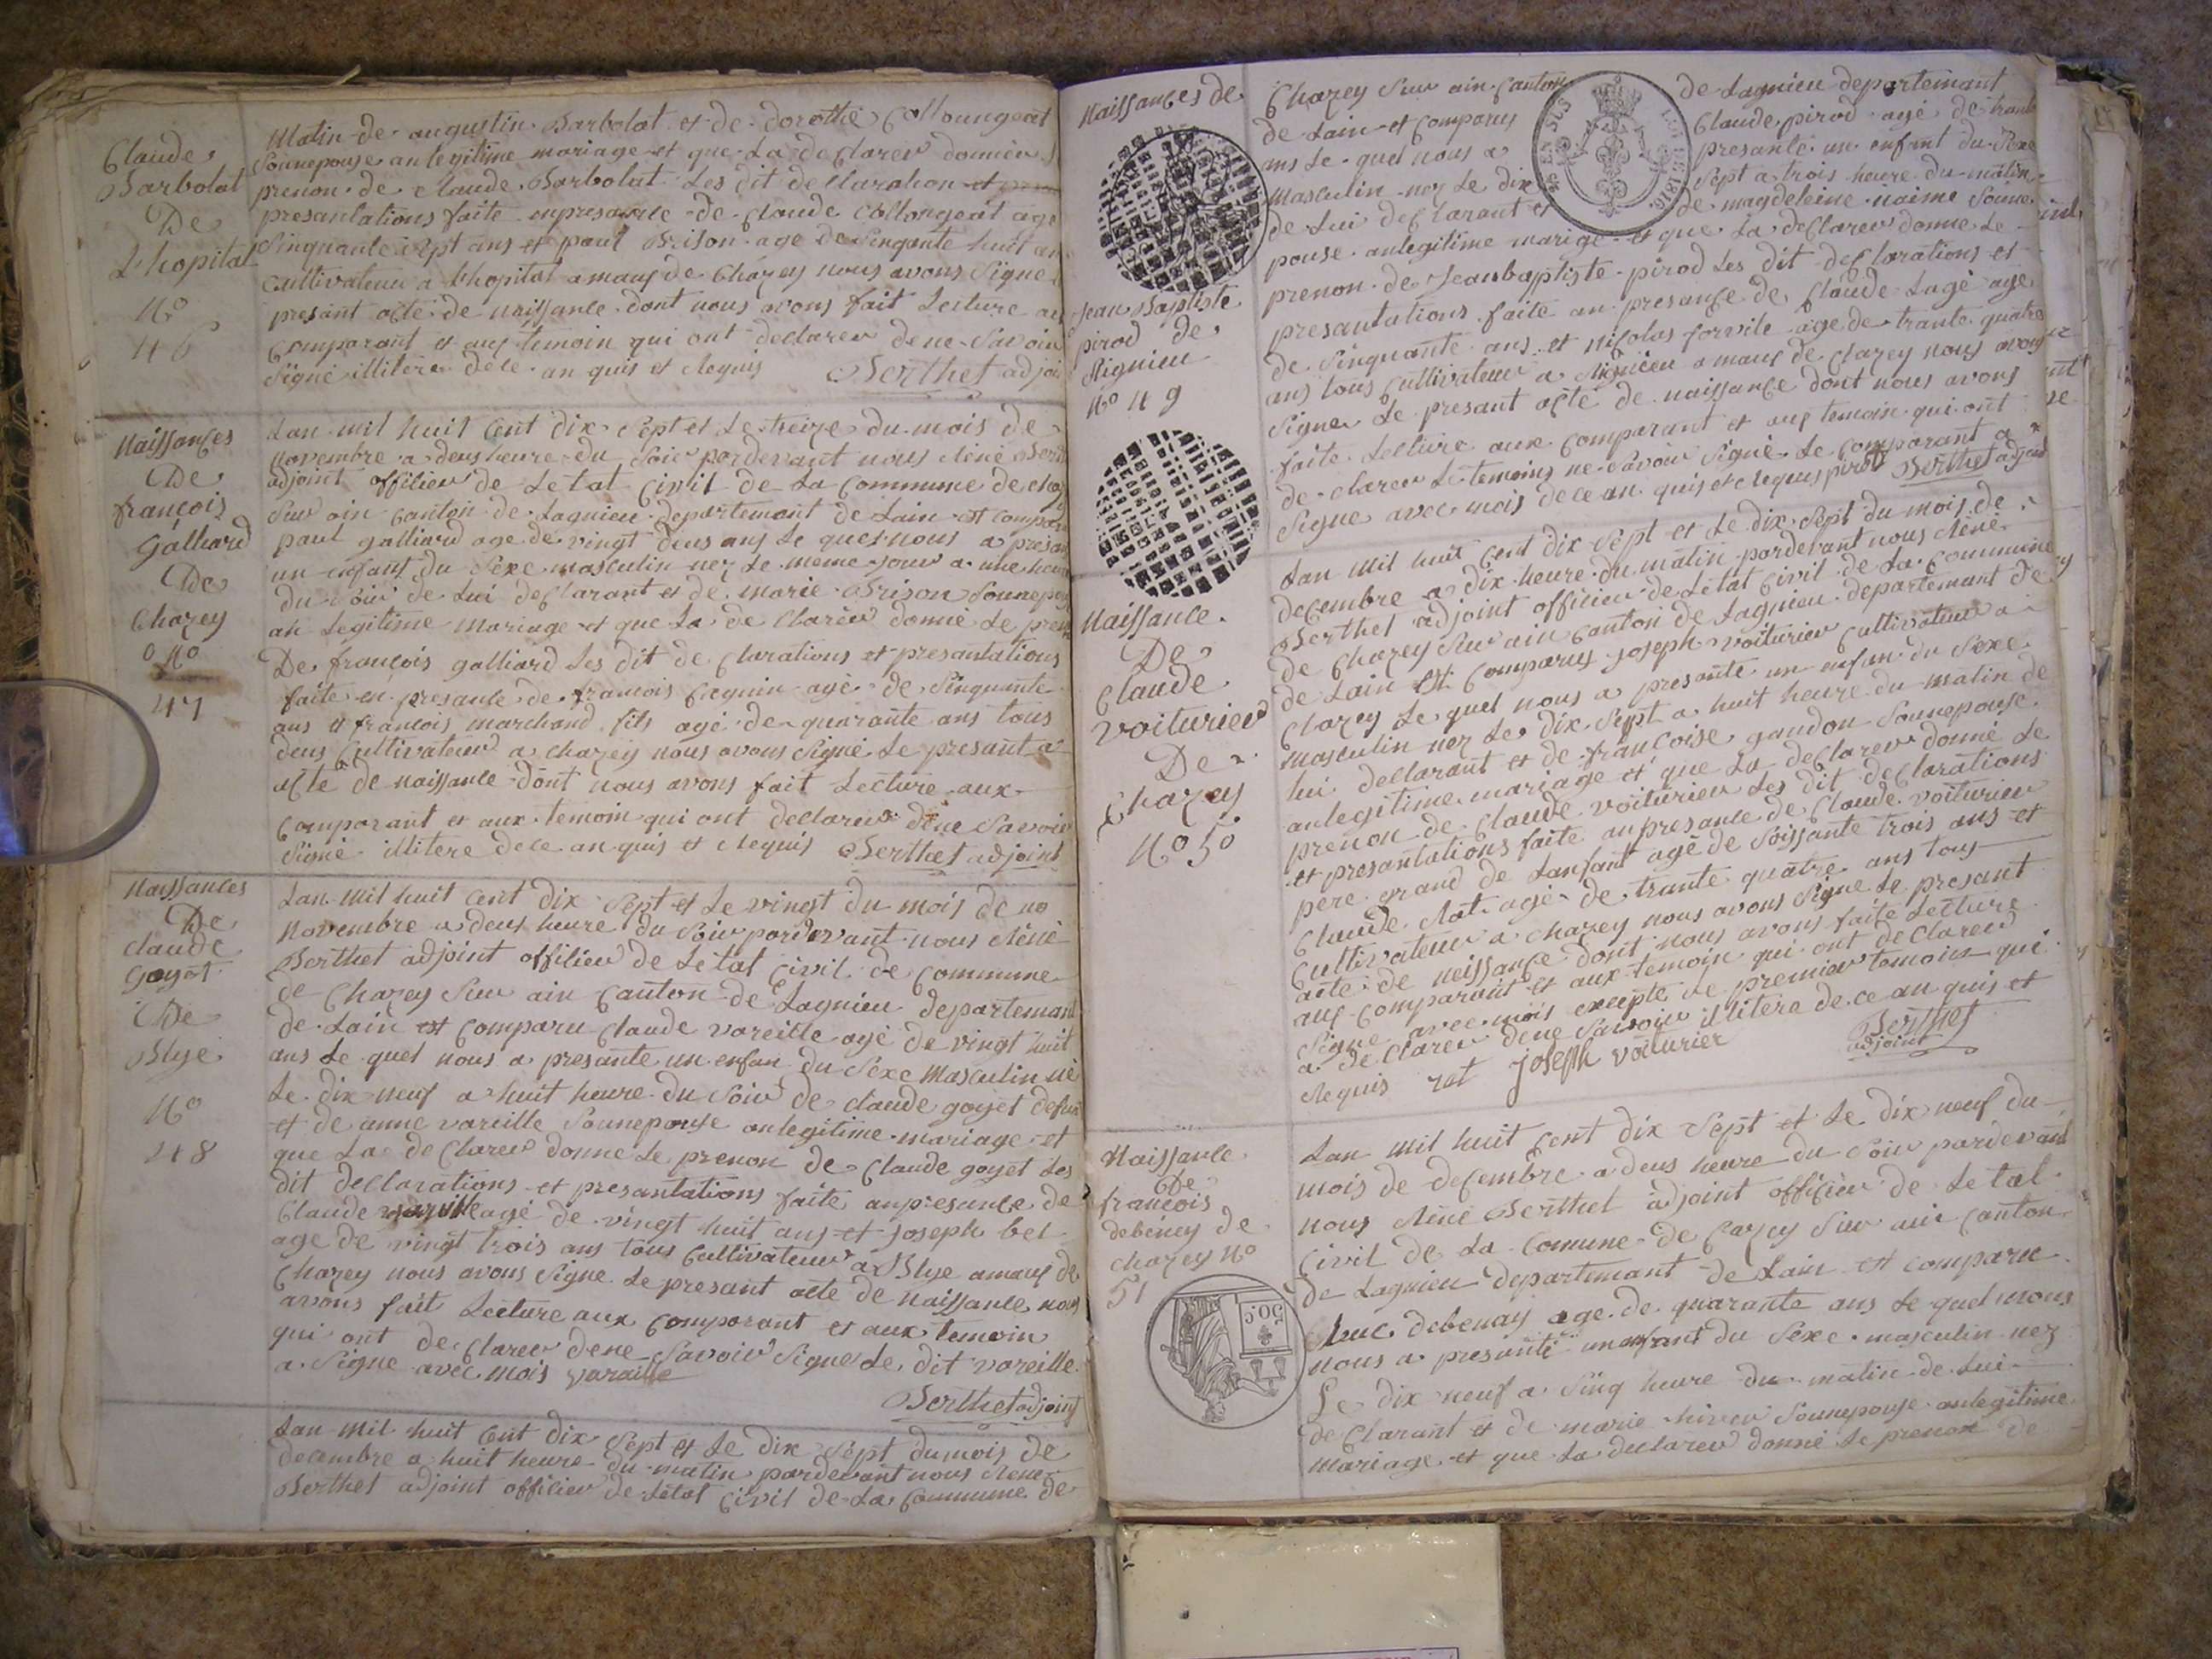 Claude
Barbolat
De
L'hopital
No
46
Matin de augustin Barbolat et de dorothé Colloungeat
Sounepouse anlegitime mariage et que La declarer donnéer
prenon de Claude Barbolat Les dit declaration
presantations faite enpresance de Claude Collongeat age
Singnante Sept ans et paul Brison age de Singante huit an
Cultivateur a Lhopital amauf de Chazey nous avons Signe
presant acte de naissance dont nous avons fait Lecture au
Comparant et aux temoin qui ont declarer dene Savoir
Signé illitere dele an quis et Requis Berthet adjoi
Naissances
De
françois
Galliard
De
Chazey
No
47
Lan mil huit Cent dix Sept et Le treize du mois de
novembre a deus heure du Soir pardevant nous Réné Bert
adjoint offilier de Letat Civil de La Commune de chaz
Sur ain Canton de Lagnieu departemant de Lain est Compar
paul galliard age de vingt deus ans Le quel nous a presan
un enfant du Sexe masculin nez Le meme jour a une heur
du Soir de Lui declarant et de marie Brison Sounepou
an Legitime mariage et que La declarer donné Le pren
De françois galliard Les dit declarations et presantations
faite en presance de francois Ceguin agé de Sinquante
ans et francois marchand fils agé de quarante ans tous
deus Cultivateur a chazey nous avons Signé Le presant a
acte de naissance dont nous avons fait Lecture aux
Comparant et aux temoin qui ont declarer dene Savoir
Signé illitere dece an quis et Requis Berthet adjoint
Naissances
De
Claude
goyet
De
Blye
No
48
Lan Mil huit Cent dix Sept et Le vingt du mois de no
Novembre a deus heure du Soir pardevant nous Réné
Berthet adjoint offilier de Letat Civil de Commune
de Chazey Sur ain Canton de Lagnieu departemant
de Lain est Comparu Claude vareille agé de vingt huit
ans Le quel nous a presante un enfan du Sexe Masculin né
Le dix neuf a huit heure du Soir de Claude goyet defun
et de anne vareille Sounepouse anlegitime mariage et
que La declarer donne Le prenon de Claude goyet Les
dit declarations et presantations faite anpresance de
Claude agé de vingt huit ans et Joseph bel
age de vingt trois ans tous Cultivateur a Blye amauf de
Chazey nous avons Signe Le presant acte de Naissance nous
avons fait Lecture aux Comparant et aux temoin
qui ont declarer dene Savoir Signe Le dit vareille
a Signe avec mois varaille
Berthet adjoint
Lan Mil huit Cent dix Sept et Le dix Sept dumois de
decembre a huit heure du matin pardevant nous Renez
Berthet adjoint offilier de Letat Civil de La Commune de
Naissances de
Jean Baptiste
pirod de
Rignieu
No 49
Chazey Sur ain Canton de Lagnieu departemant
de Lain et Comparus Claude pirod agé de trante
ans Le quel nous a presanté un enfant du Sexe
Masculin nez Le dix Sept a trois heure du matin
de Lui declarant et de magdeleine naime Soune
pouse anlegitime marige et que La declarer donne Le
prenon de Jeanbaptiste pirod Les dit declarations et
presantations faite an presance de Claude Lagé age
de Sinquante ans et nicolas forvile age de trante quatre
ans tous Cultivateur a Rignieu amauf de Chazey nous avons
Signer Le presant acte de naissance dont nous avons
faite Lecture aux Comparant et aux temoin qui ont
declarer Le temoins ne Savoir Signé Le Comparant a
Signe avec mois dece an quis et requis pirod Berthet adjoint
Naissance
De
Claude
Voiturier
De
Chazey
No 50
Lan Mil huit Cent dix Sept et Le dix Sept du mois de
decembre a dix heure du matin pardevant nous Réné
Berthet adjoint officier de Letat Civil de La Commune
de Chazey Sur ain Canton de Lagnieu departemant de
de Lain est Comparus Joseph Voiturier Cultivateur a
Chazey Le quel nous a presante un enfan du Sexe
masculin nez Le dix Sept a huit heure du matin de
lui declarant et de françoise gaudon Sounepouse
anlegitime mariage et que La declarer donné Le
prenon de Claude Voiturier Les dit declarations
et presantations faite anpresance de Claude Voiturier
pere grand de Lanfant agé de Soissante trois ans et
Claude Rat agé de trante quatre ans tous
Cultivateur a Chazey nous avons Signe Le presant
acte de neissance dont nous avons faite Lecture
aux Comparant et aux temoin qui ont declarer
Signe avec mois excepté Le premier temoin qui
a declarer dene Savoir illitere de ce an quis et
Requis rat Joseph voiturier Berthet
adjoint
Naissance
De
francois
debeney de
Chazey No
51
Lan Mil huit Cent dix Sept et Le dix neuf du
mois de decembre a deus heure du Soir pardevant
nous Réné Berthet adjoint officier de Letat
Civil de La Comune de Cazey Sur ain Canton
de Lagnieu departemant de Lain et Comparu
Luc debenay age de quarante ans Le quel nous
nous a presanté un enfant du Sexe masculin nez
Le dix neuf a Sinq heure du matin de Lui
declarant et de marie hiver Sounepouse anlegitime
mariage et que La declarer donné Le prenon de
50C.
EN SUS
1816